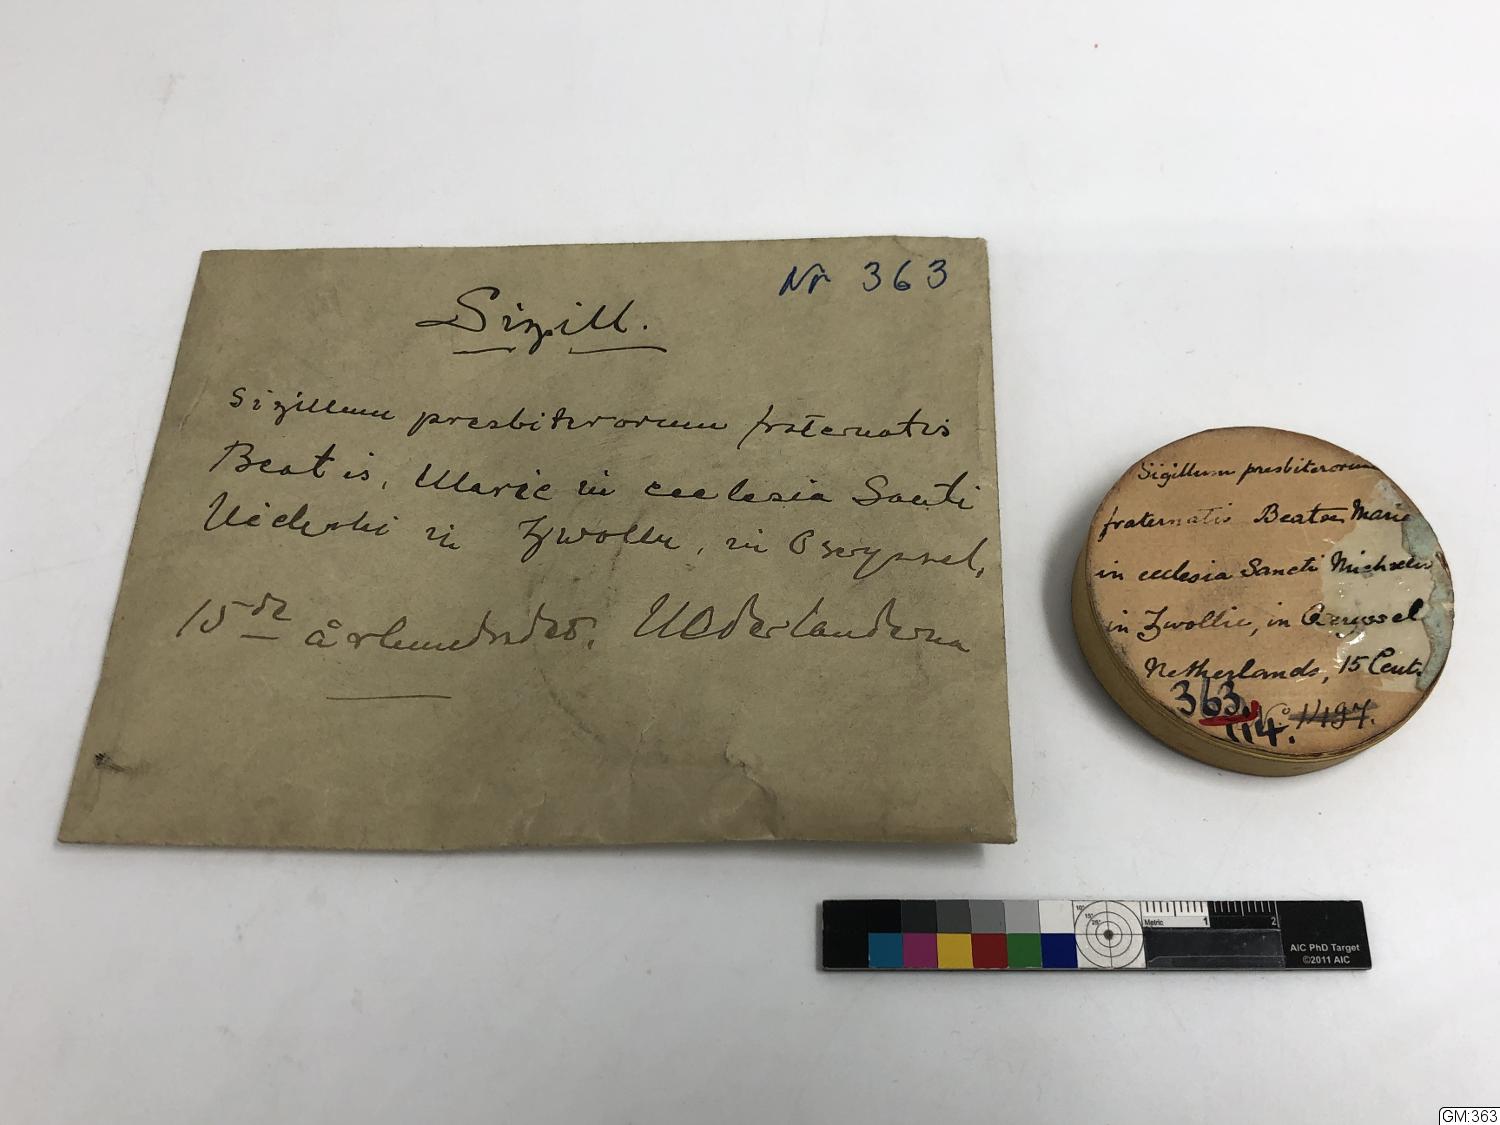 Nr 363
Sigill.
Sigillum presbiterorum fraternatis
Beatis, Marie in ecclesia Sancti
in Zwolle, in
15de århundradet. Nederländerna
Sigillum presbiterorum
fraternatis Beatae Marie
in ecclesia Sancti Michaelis
in Zwollie, in Oeryssel
Netherlands, 15 Cent.
363.
No. 1497.
114.
Metric 1 2
AIC PhD Target
©2011 AIC
GM:363